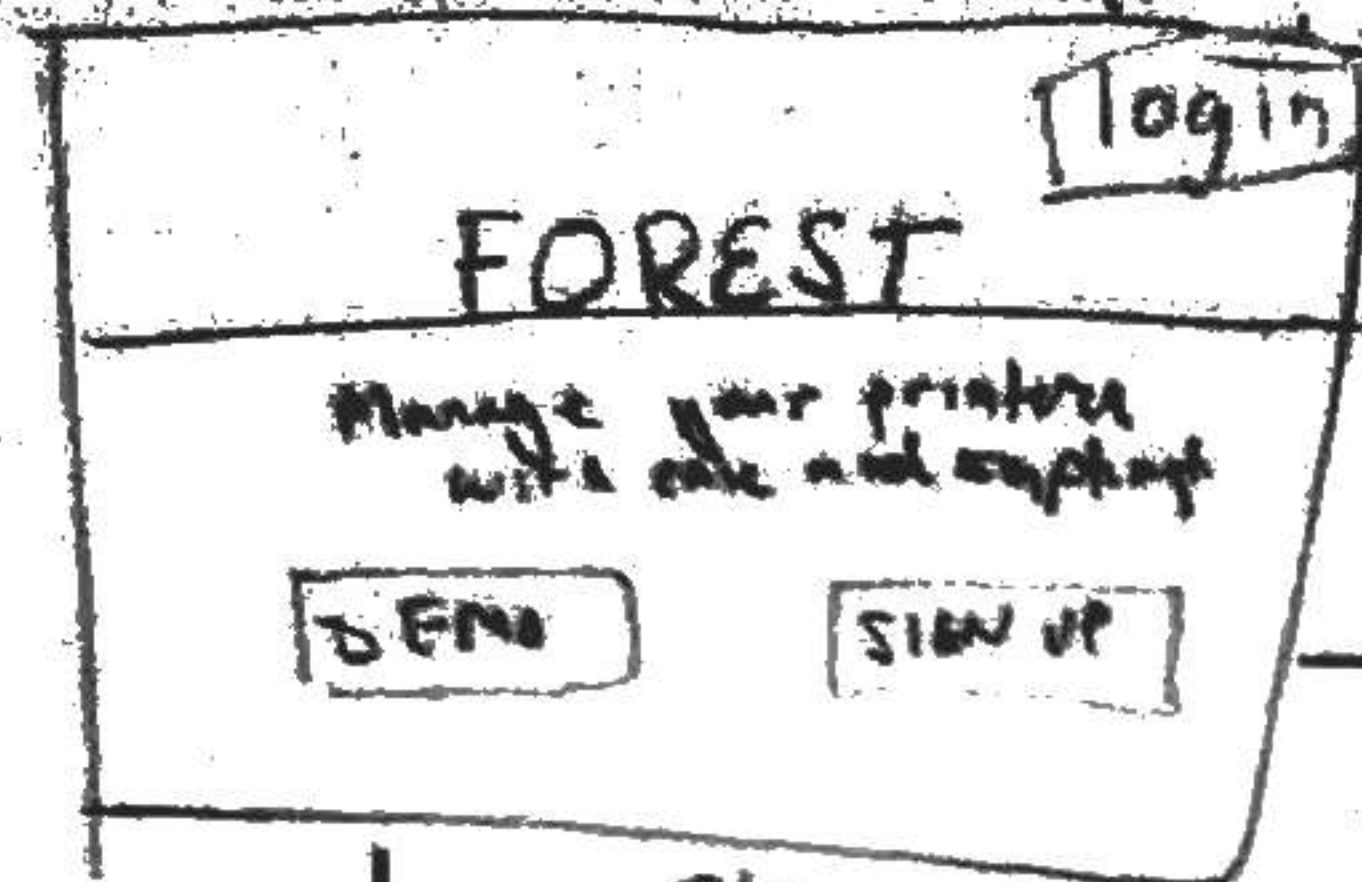 login
FOREST
Manage your printers
with and
DEMO
SIGN UP